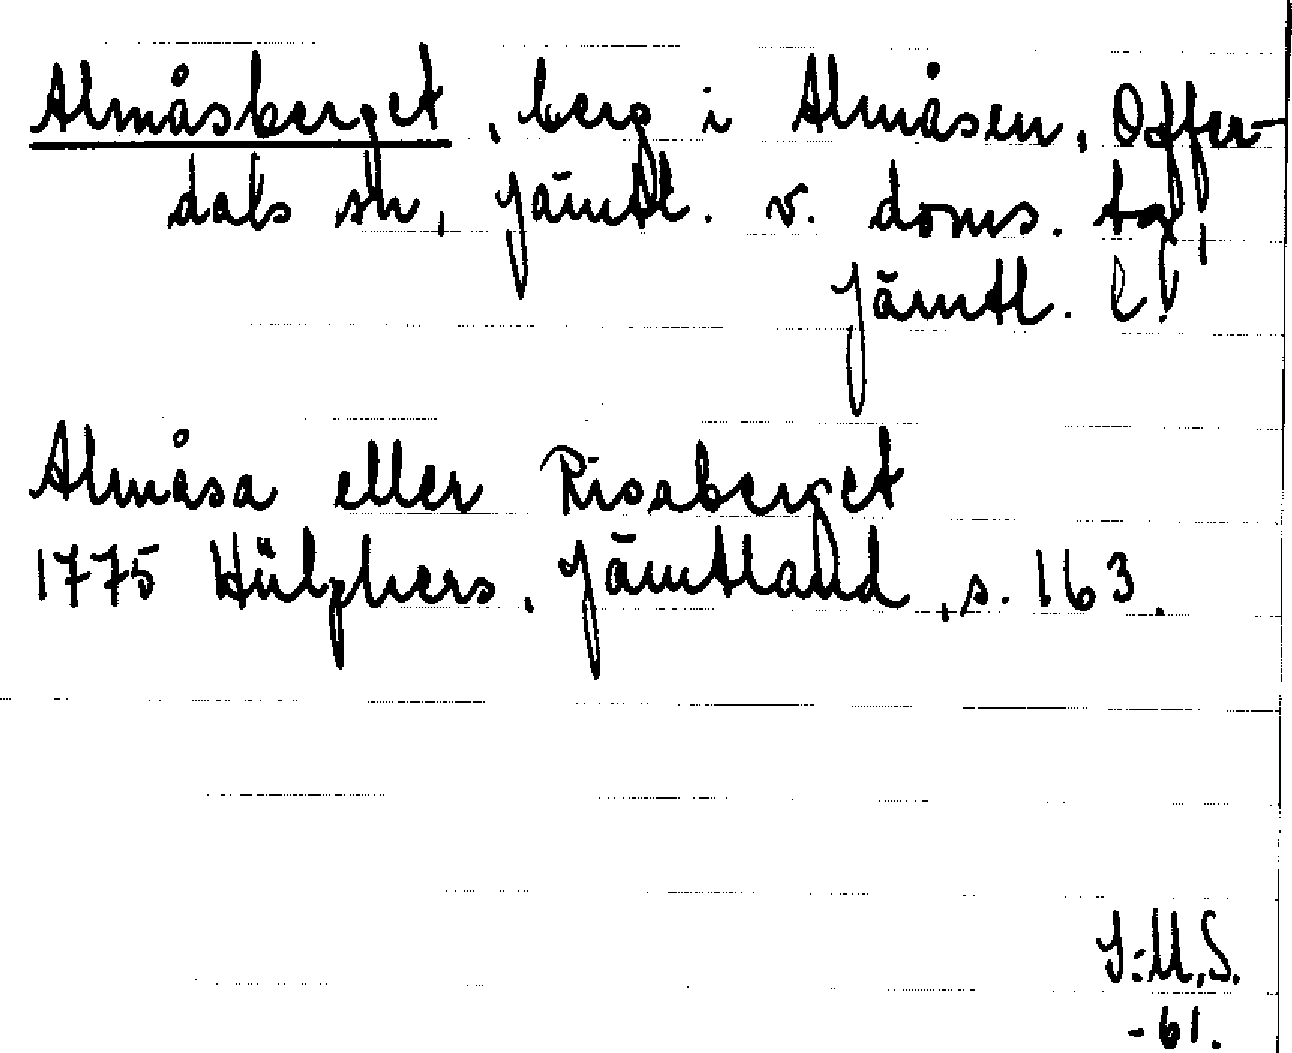 Almåsberget, berg i Almåsen, Offer-
dals sn, Jämtl. v. doms. tg,
Jämtl. l.
Almåsa eller Risaberget
1775 Hülphers, Jämtland, s. 163.
I:M.S.
-61.